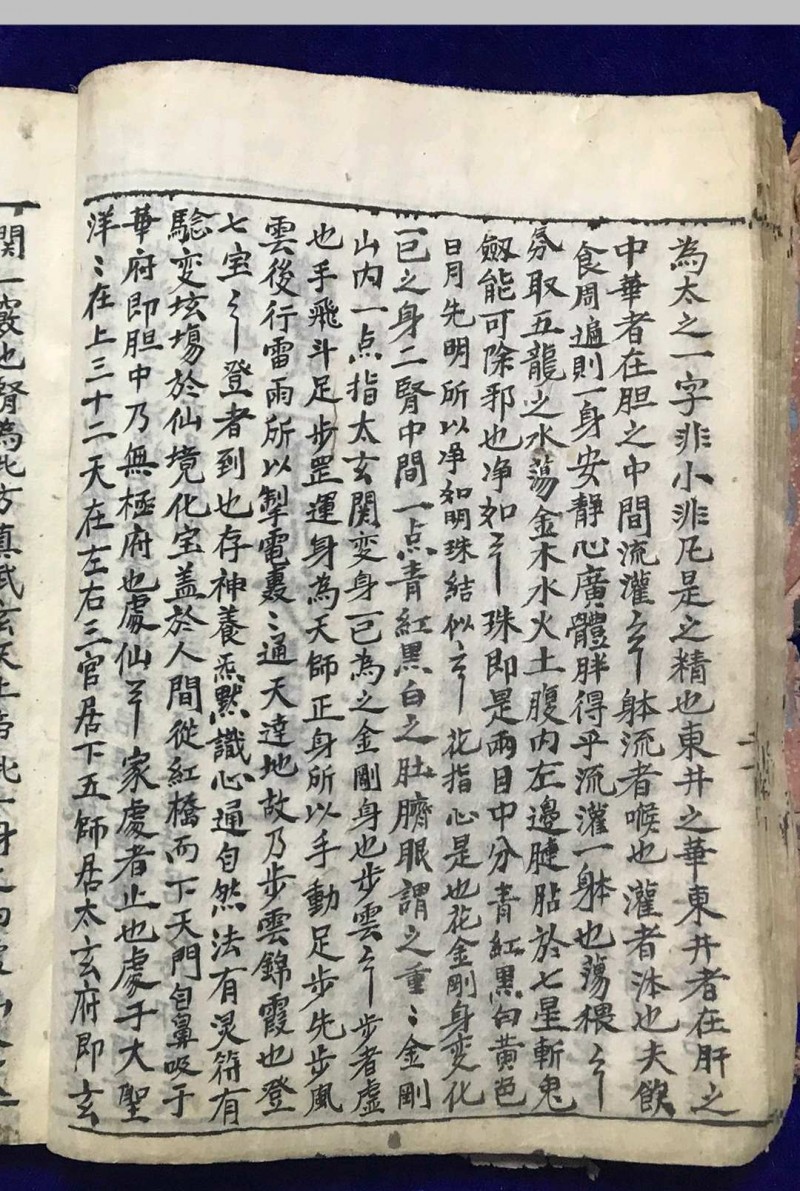 為太之一字非小非凡是之精也東井之華東井者在肝之
中華者在胆之中間流灌云〻躰流者喉也灌者泍也夫飲
食周遍則一身安靜心廣體胖得乎流灌一躰也蕩穢云〻
氛取五龍之水蕩金木水火土腹內左邊腱貼於七星斬鬼
劔能可除邪也净如云〻珠即是兩目中分青紅黑白黃色
日月先明所以净如明珠結似云〻花指心是也花金剛身變化
一已之身二腎中間一点青紅黑白之肚臍眼謂之重〻金剛
山內一点指太玄関变身一已為之金剛身也步雲云〻步者虛
也手飛斗足步罡運身為天師正身所以手動足步先步風
雲後行雷雨所以掣電轟〻通天達地故乃步雲錦霞也登
七宝云〻登者到也存神養炁默識心通自然法有灵符有
騐变垓塲於仙境化宝盖於人間從紅橋而下天門自鼻吸于
華府即胆中乃無極府也處仙云〻家處者止也處于大聖
洋〻在上三十二天在左右三官居下五師居太玄府即玄
関一竅也腎為北方真武玄天上帝